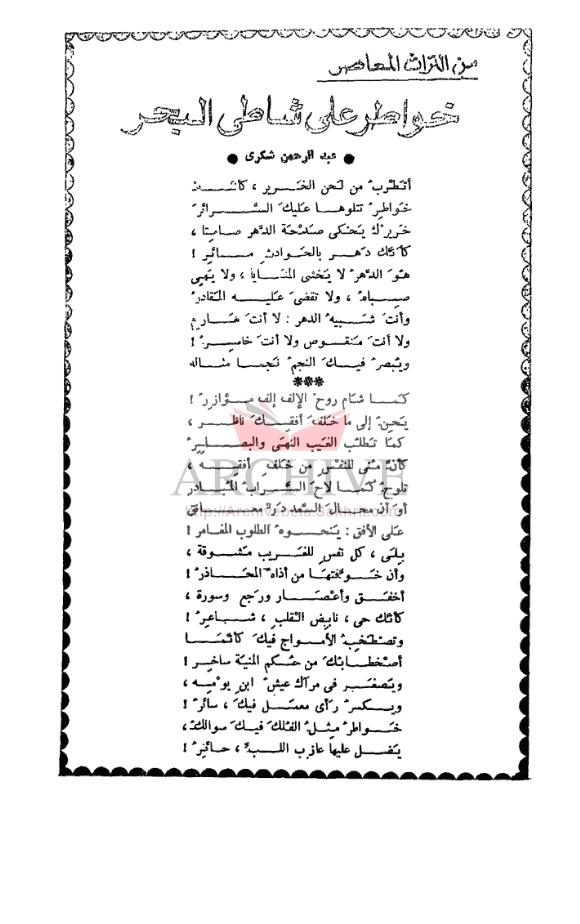 من التراث المعاصر
خواطر على شاطئ البحر
● عبد الرحمن شكرى ●
أتطرب من لحن الخرير ، كأنه
خواطر تتلوها عليك السرائر
خريرك يحكى صدحة الدهر صامتا ،
كأنك دهر بالحوادث مائر !
هو الدهر لا يخشى المنايا ، ولا يهى
صباه ، ولا تقضى عليه المقادر
وأنت شبيه الدهر : لا أنت هارم
ولا أنت منقوص ولا أنت خاسر !
ويبصر فيك النجم نجما مثاله
***
كما شام روح الإلف إلف مؤازر !
يحن إلى ما خلف أفقك ناظر ،
كما تطلب الغيب النهى والبصاير
كأن منى للنفس من خلف أفقه ،
تلوح كما لاح السراب المغادر
أو أن محال السعد در
ARCHIVE
http://Archivebeta.Sakhrit.com
على الأفق : ينحوه الطلوب المغامر !
بلى ، كل نفس للغريب مشوقة ،
وأن خوفتها من أذاه المحاذر !
أخفق وأعصار ورجع وسورة ،
كأنك حى ، نابض القلب ، شاعر !
وتصطخب الأمواج فيك كأنما
أصطخابك من حكم المنية ساخر !
ويصغر فى مرآك عيش ابن يومه ،
ويكسر رأى معمل فيك ، سائر !
خواطر مثل الفلك فيك سوالك ،
يضل عليها عازب اللب ، حائر !